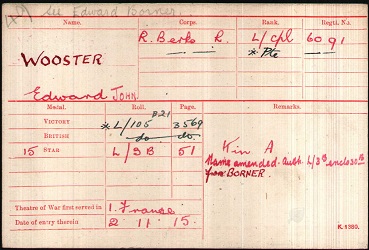 See Edward Borner
Name. Corps. Rank. Regtl. No.
R. Berks R. L/Cpl 6091
WOOSTER
* Pte
Edward JOHN
Medal. Roll. Page. Remarks.
VICTORY * L/105 B21 3569
BRITISH do do
15 STAR L/9B 51
K in A
Name amended. Auth
from BORNER.
Theatre of War first served in 1. France
Date of entry therein 2. 11. 15.
K. 1380.